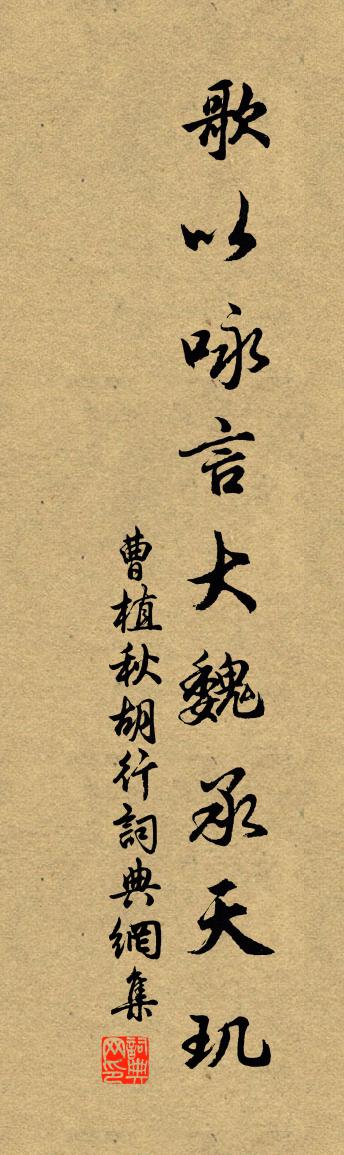 歌以咏言大魏承天玑
曹植秋胡行詞典網集
詞典网印